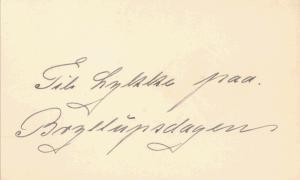 Til Lykke paa.
Bryllupsdagen